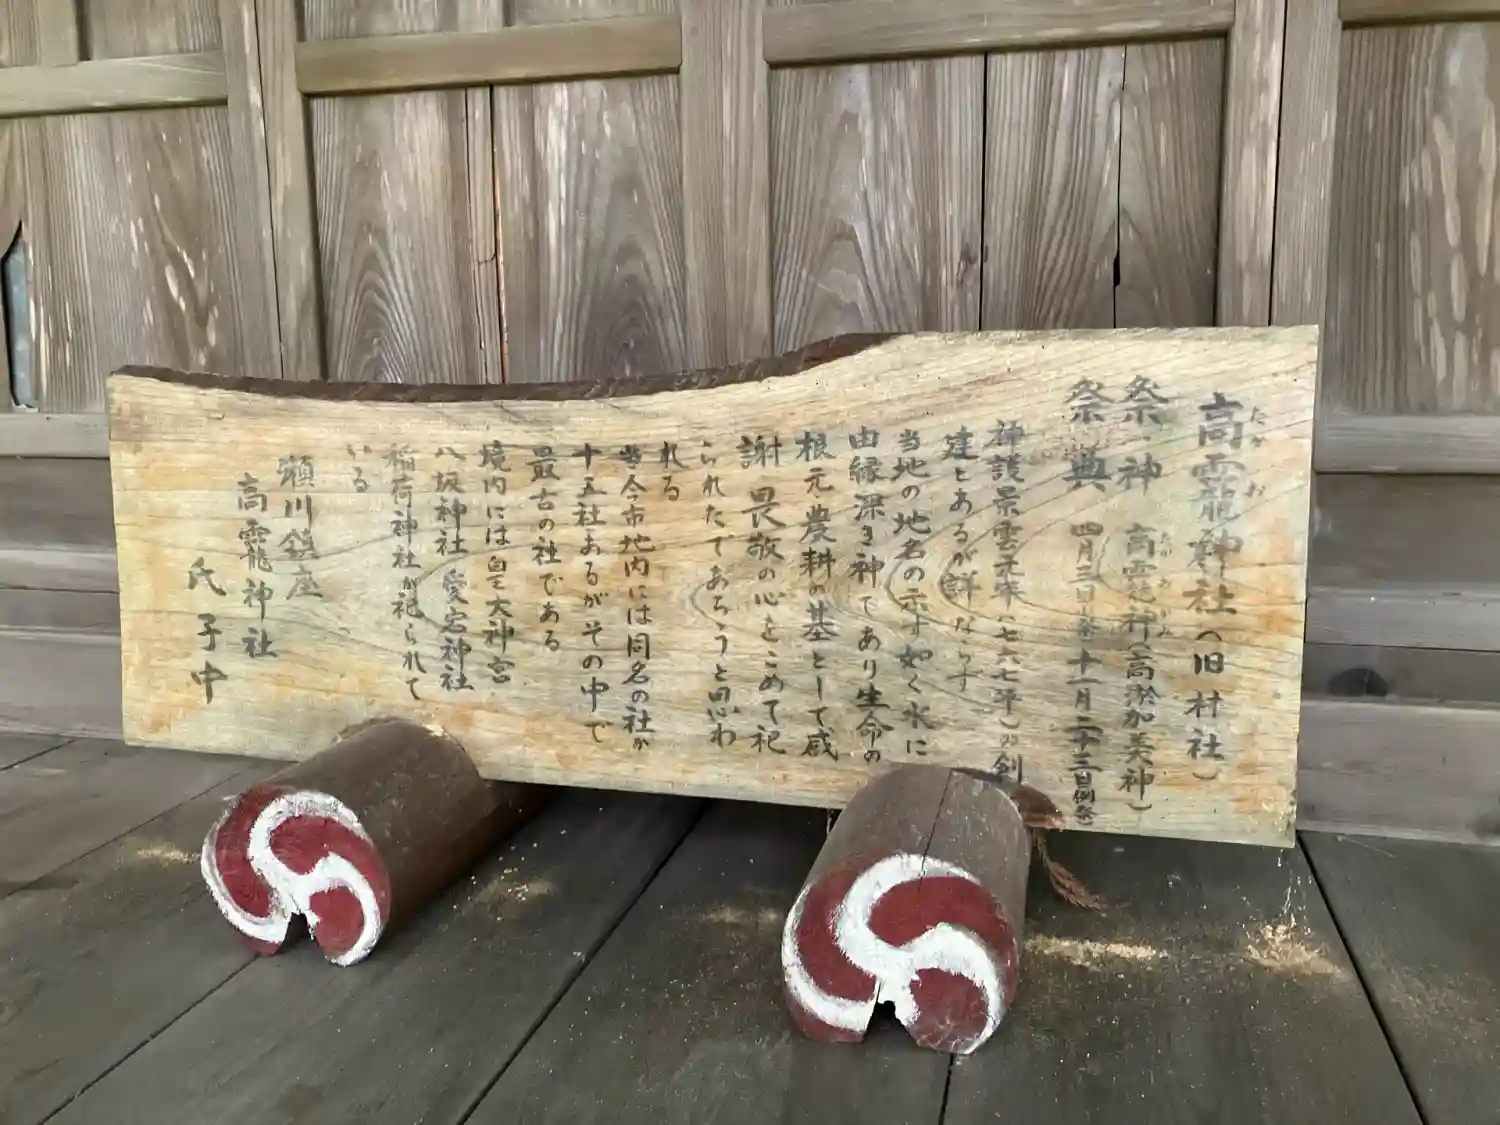 高靇神社（旧村社）
たかお
祭神 高靇神（高淤加美神）
たかおかみ
祭典 四月三日祭 十一月二十三日例祭
神護景雲元年（七六七年）の創
建とあるが詳ならず
当地の地名の示す如く水に
由縁深き神であり生命の
根元農耕の基として感
謝畏敬の心をこめて祀
られたであろうと思わ
れる
当今市地内には同名の社が
十五社あるがその中で
最古の社である
境内には皇大神宮
八坂神社 愛宕神社
稲荷神社が祀られて
いる
瀬川鎮座
高靇神社
氏子中